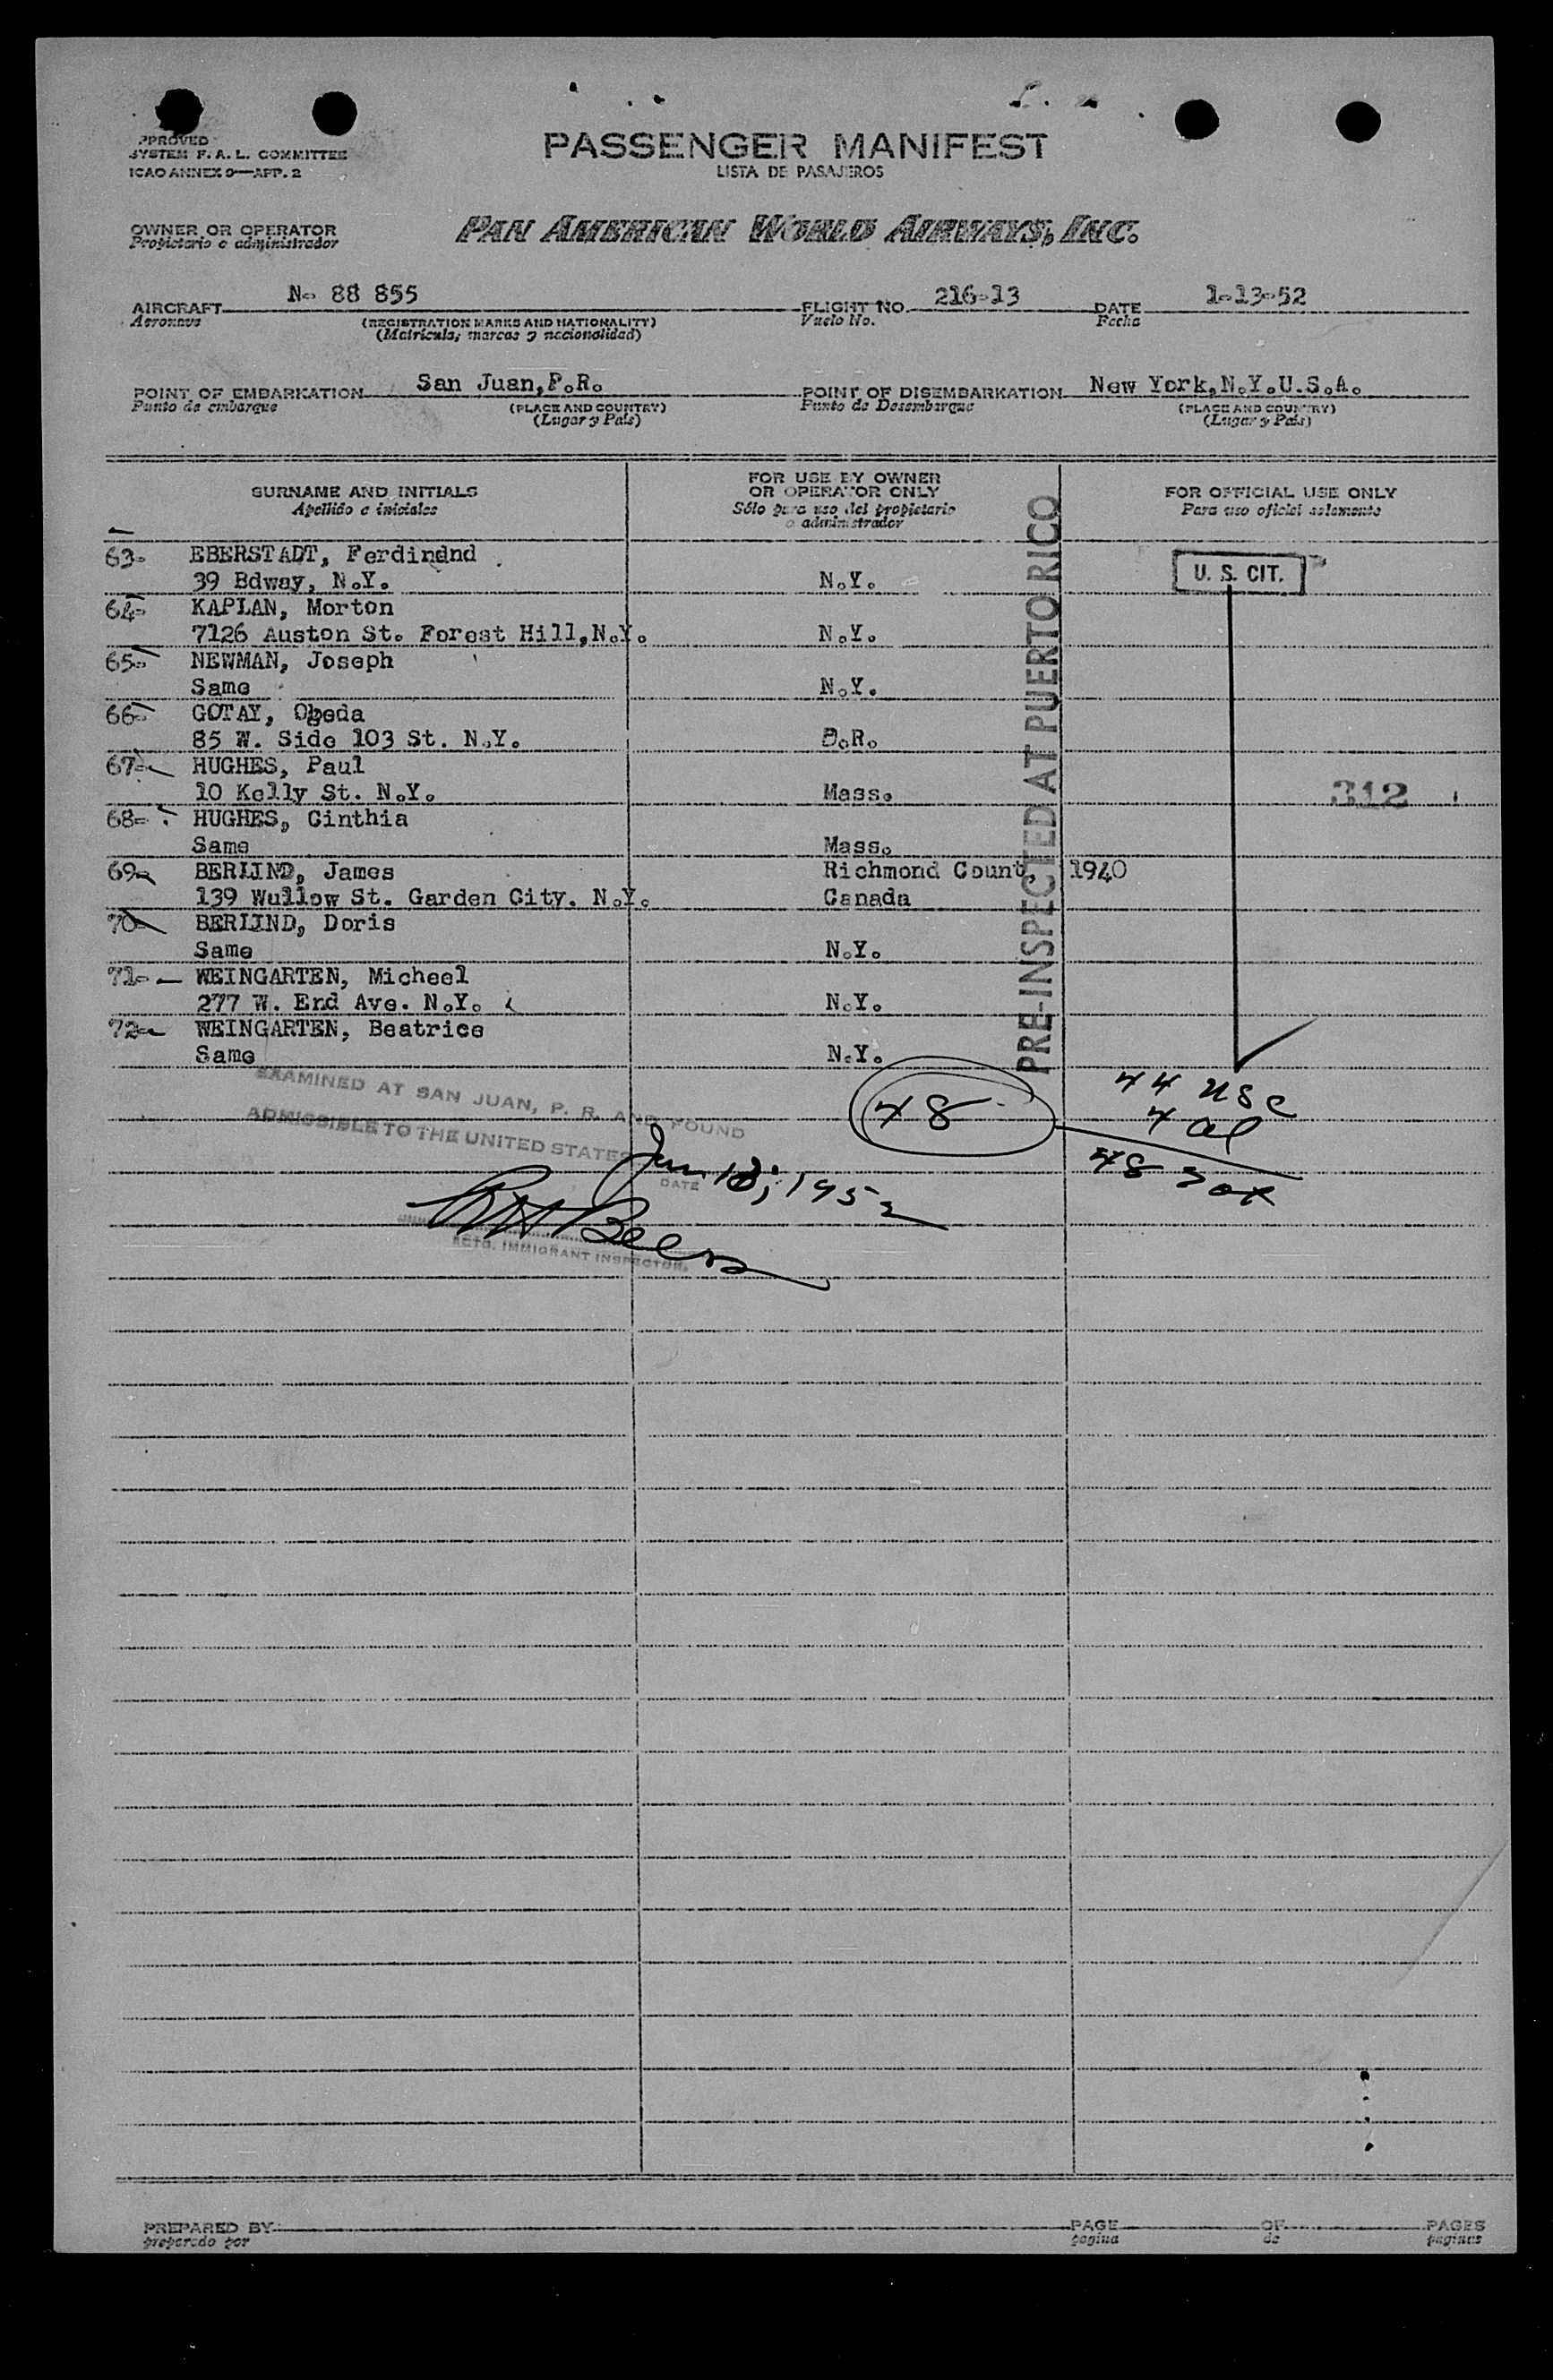 PPROVED
SYSTEM F. A. L. COMMITTEE
ICAO ANNEX 9—APP. 2
PASSENGER MANIFEST
LISTA DE PASAJEROS
OWNER OR OPERATOR
Propietario o administrador
PAN AMERICAN WORLD AIRWAYS, INC.
AIRCRAFT N- 88 855 FLIGHT NO. 216-13 DATE 1-13-52
Aeronave (REGISTRATION MARKS AND NATIONALITY) Vuelo No. Fecha
(Matricula, marcas y nacionalidad)
POINT OF EMBARKATION San Juan,P.R. POINT OF DISEMBARKATION New York,N.Y.U.S.A.
Punto de embarque (PLACE AND COUNTRY) Punto de Desembarque (PLACE AND COUNTRY)
(Lugar y País) (Lugar y País)
SURNAME AND INITIALS FOR USE BY OWNER OR OPERATOR ONLY FOR OFFICIAL USE ONLY
Apellido e iniciales Sólo para uso del propietario o administrador Para uso oficial solamente
63- EBERSTADT, Ferdinand
39 Bdway, N.Y. N.Y. U. S. CIT.
64- KAPLAN, Morton
7126 Auston St. Forest Hill,N.Y. N.Y.
65- NEWMAN, Joseph
Same N.Y.
66- GOTAY, Obeda
85 W. Side 103 St. N.Y. D.R.
67- HUGHES, Paul
10 Kelly St. N.Y. Mass. 312
68- HUGHES, Cinthia
Same Mass.
69- BERLIND, James Richmond Count, 1940
139 Wullow St. Garden City. N.Y. Canada
70- BERLIND, Doris
Same N.Y.
71- WEINGARTEN, Micheel
277 W. End Ave. N.Y. N.Y.
72- WEINGARTEN, Beatrice
Same N.Y.
PRE-INSPECTED AT PUERTO RICO
EXAMINED AT SAN JUAN, P. R. AND FOUND
ADMISSIBLE TO THE UNITED STATES
48
44 USC
4 al
48 Tot
Jan 13, 1952
DATE
ACTG. IMMIGRANT INSPECTOR.
PREPARED BY PAGE OF PAGES
preparado por pagina de paginas